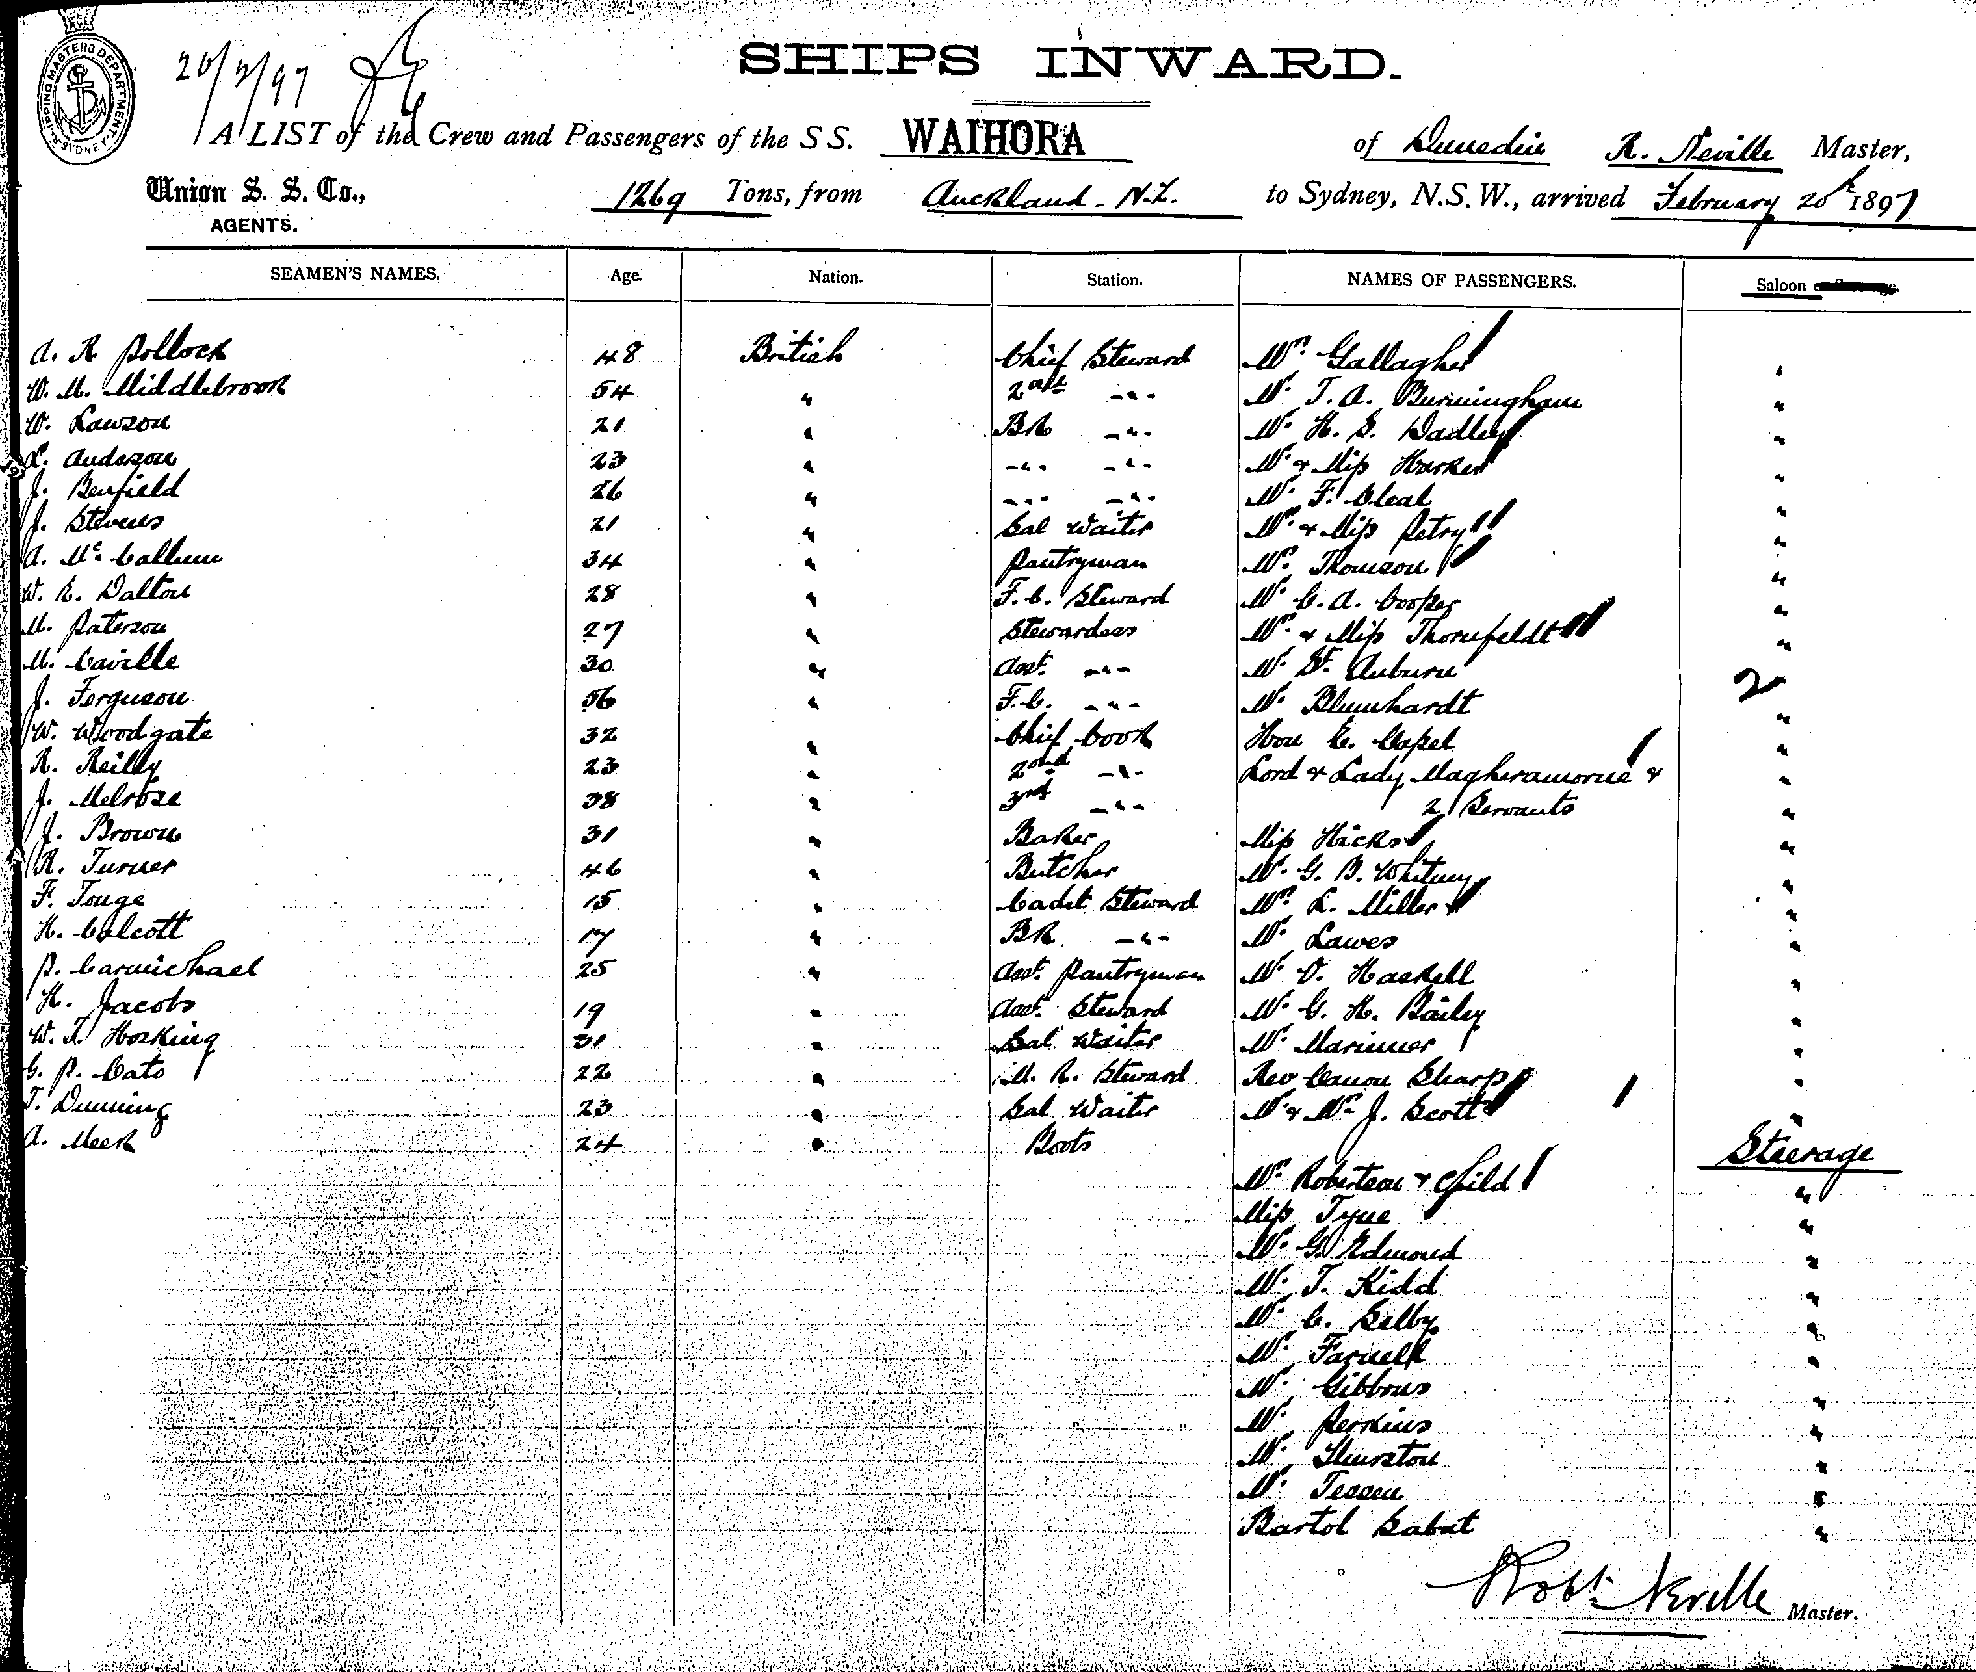 SHIPPING MASTERS DEPARTMENT SYDNEY
20/2/97
SHIPS INWARD.
A LIST of the Crew and Passengers of the S S. WAIHORA of Dunedin R. Neville Master,
Union S. S. Co., 1269 Tons, from Auckland - N.Z. to Sydney, N.S.W., arrived February 20th 1897
AGENTS.
SEAMEN'S NAMES. Age. Nation. Station. NAMES OF PASSENGERS. Saloon
A. R. Pollock 48 British Chief Steward Mrs. Gallagher "
W. M. Middlebrook 54 " 2nd -"- Mr. T. A. Burmingham "
W. Lawson 21 " BR -"- Mr. H. S. Dadley "
L. Anderson 23 " -"- -"- Mr. & Miss Harker "
J. Benfield 26 " -"- -"- Mr. F. Cleal "
J. Stevens 21 " Sal Waiter Mrs. & Miss Petry "
A. McCallum 34 " Pantryman Mrs. Thomson "
W. E. Dalton 28 " F. C. Steward Mr. C. A. Cooper "
M. Paterson 27 " Stewardess Mrs. & Miss Thornfeldt "
M. Caville 30 " Asst. -"- Mr. St. Auburn
J. Ferguson 56 " F.C. -"- Mr. Blumhardt 2 "
W. Woodgate 32 " Chief Cook Hon E. Capel "
R. Reilly 23 " 2nd -"- Lord & Lady Magheramorne & "
J. Melrose 38 " 3rd -"- 2 Servants "
J. Brown 31 " Baker Miss Hicks "
R. Turner 46 " Butcher Mr. G. B. Whitney "
F. Tonge 15 " Cadet Steward Mrs. L. Miller "
H. Calcott 17 " BR -"- Mr. Lawes "
P. Carmichael 25 " Asst. Pantryman Mr. V. Haskell "
H. Jacobs 19 " Asst. Steward Mr. G. H. Bailey "
W. J. Hosking 31 " Sal Waiter Mr. Marimer "
G. P. Cato 22 " M. R. Steward Rev Canon Sharp "
T. Dunning 23 " Sal Waiter Mr & Mrs J. Scott "
A. Meek 24 " Boots Steerage
Mrs. Robertson & Child "
Miss Tyne "
Mr. G. Edmond "
Mr. T. Kidd "
Mr. C. Selby "
Mr. Farnell "
Mr. Gibbons "
Mr. Perkins "
Mr. Thurston "
Mr. "
Bartol Sabut "
Robt. Neville Master.